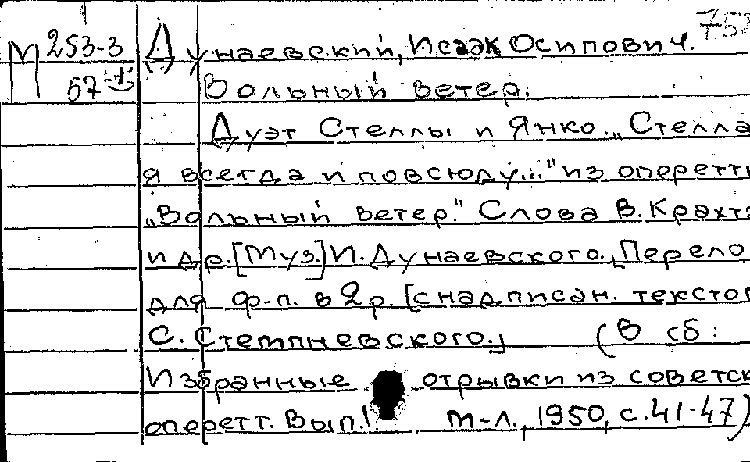 М 253-3 Дунаевский, Исаак Осипович.
57 Вольный ветер.
Дуэт Стеллы и Янко. „Стелла
я всегда и повсюду..." из оперетты
„Вольный ветер." Слова В. Крахта
и др. [Муз.] И. Дунаевского. [Перело
для ф-п. в 2 р. [с надписан. текстом
С. Стемпневского.] (В сб:
Избранные отрывки из советск
оперетт. Вып. 1 М-Л., 1950, с. 41-47)